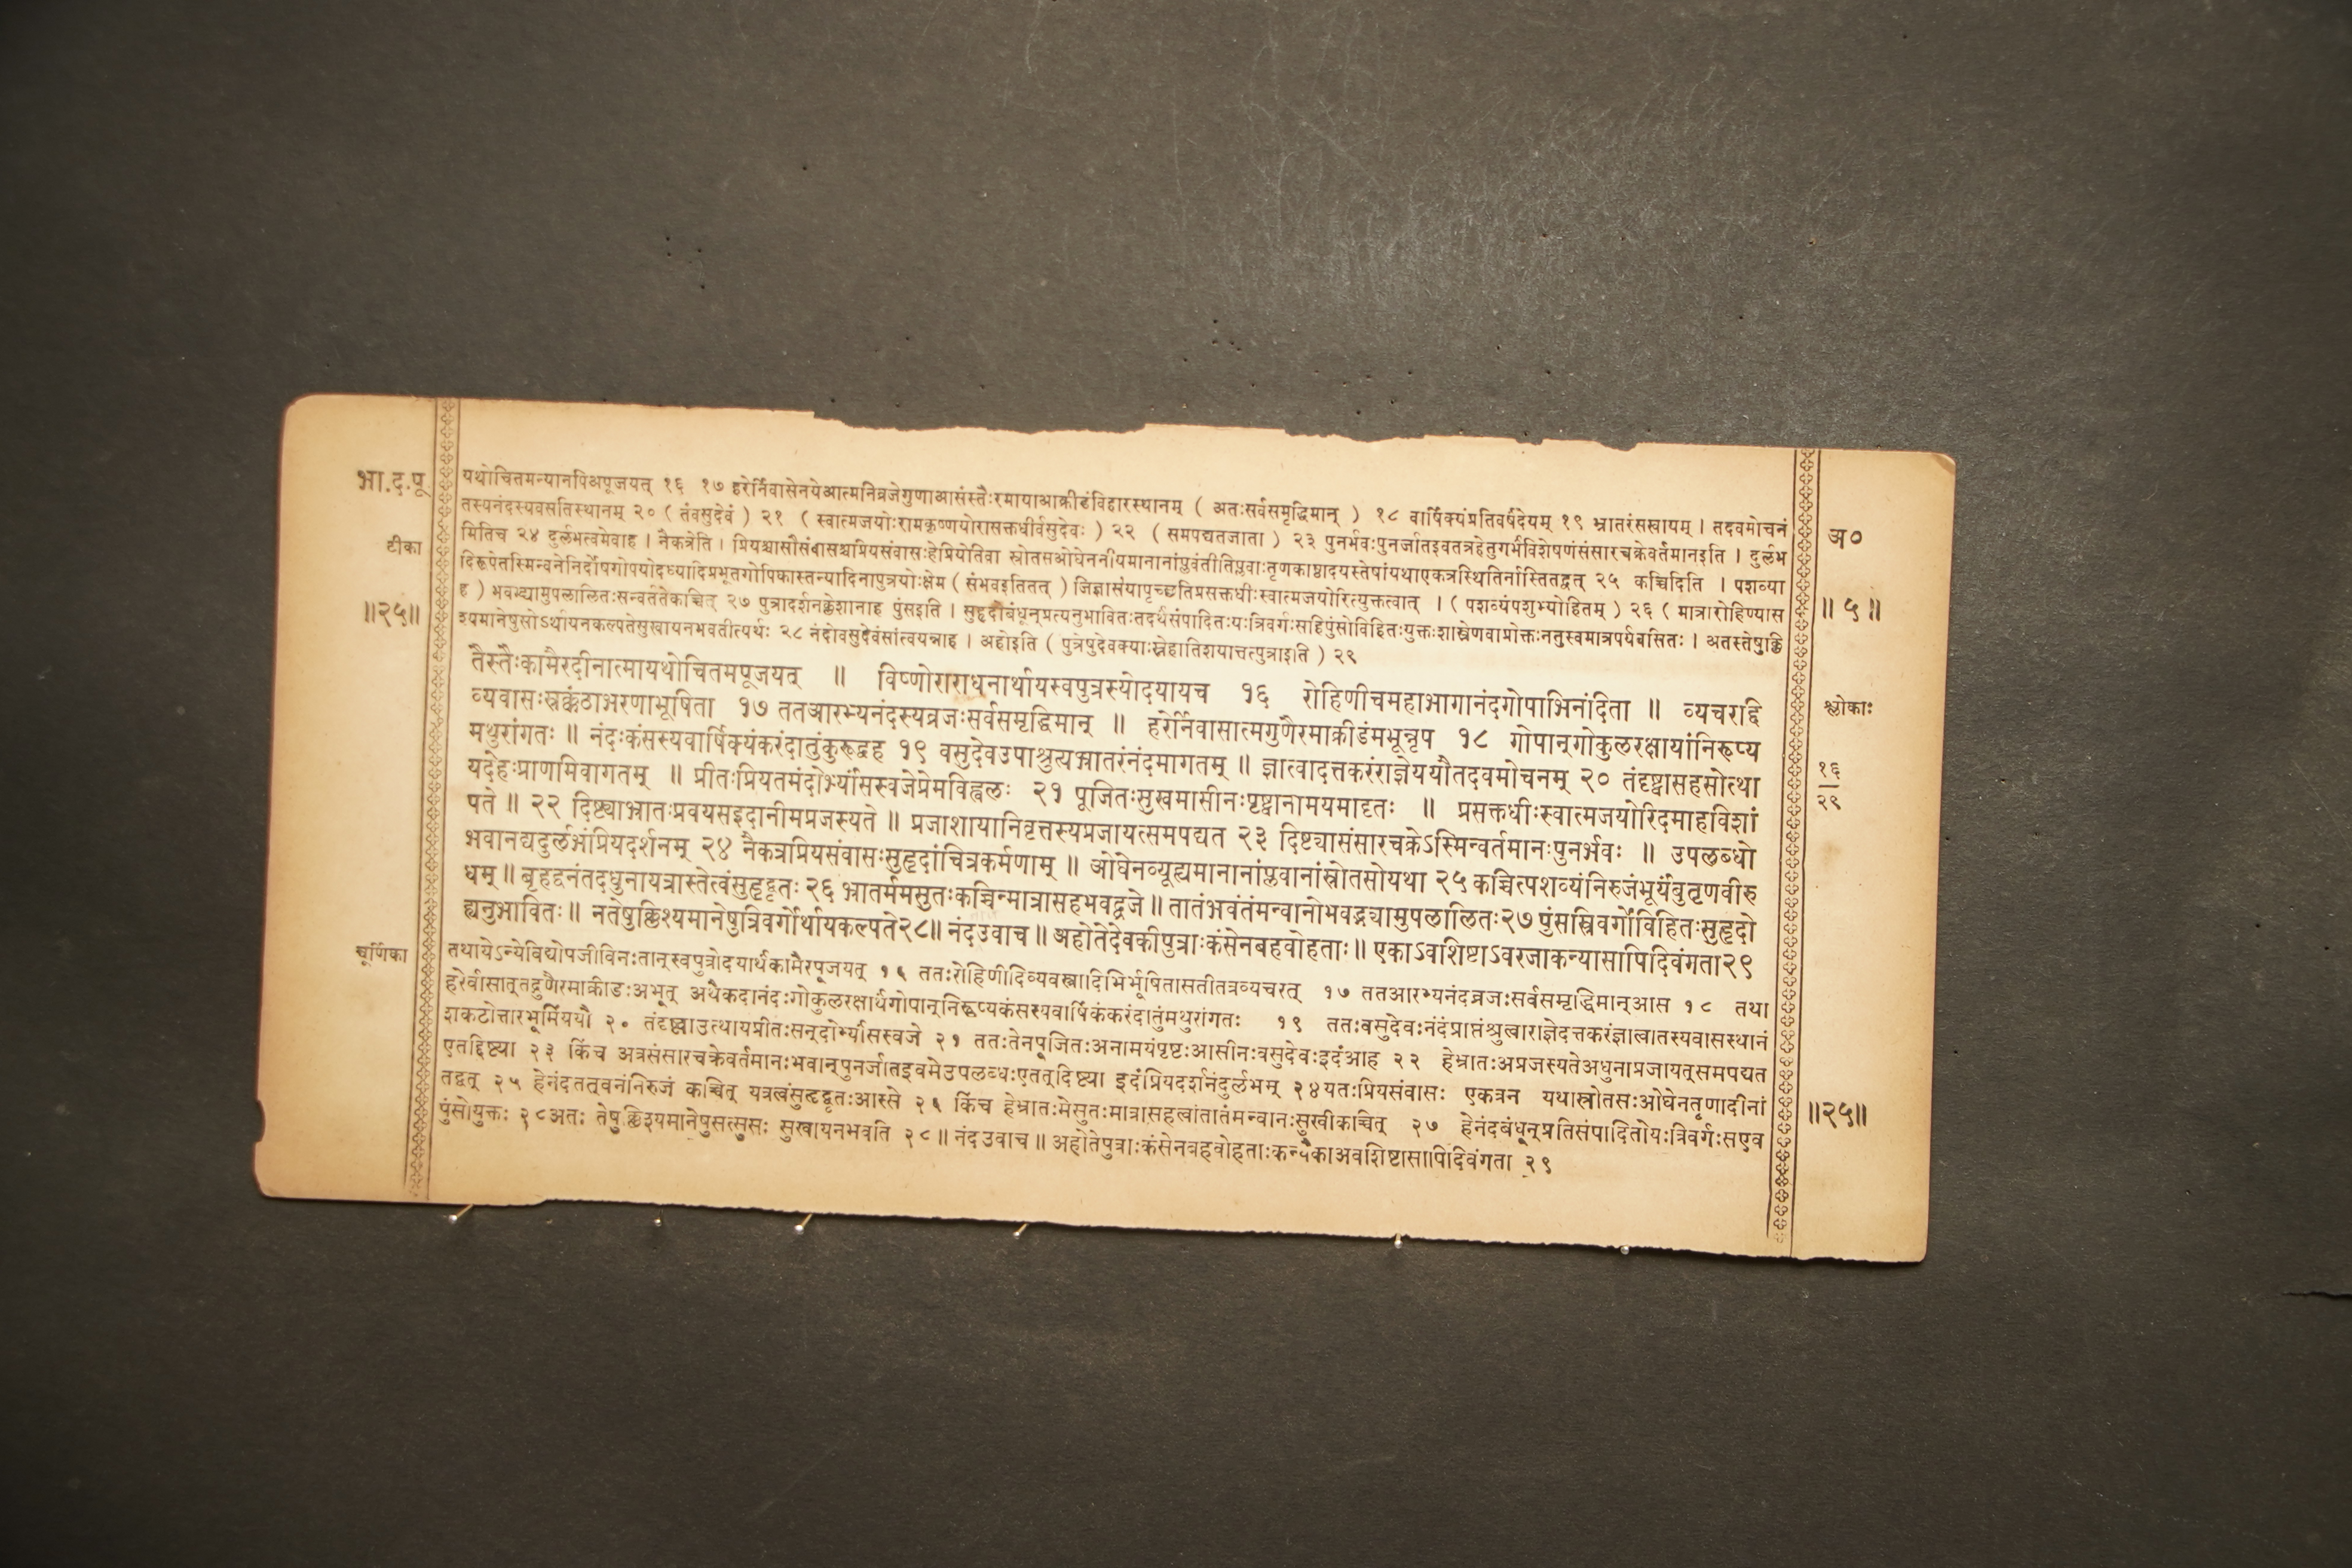 भा.द.पू
टीका
॥२५॥
यथोचितमन्यानपिअपूजयत् १६ १७ हरेर्निवासेनयेआत्मनिव्रजेगुणाआसंस्तैःरमायाआक्रीडंविहारस्थानम् ( अतःसर्वसमृद्धिमान् ) १८ वार्षिक्यंप्रतिवर्षंदेयम् १९ भ्रातरंसखायम् । तदवमोचनं
तस्यनंदस्यवसतिस्थानम् २० ( तंवसुदेवं ) २१ ( स्वात्मजयोःरामकृष्णयोरासक्तधीर्वसुदेवः ) २२ ( समपद्यतजाता ) २३ पुनर्भवःपुनर्जातइवतत्रहेतुगर्भविशेषणंसंसारचक्रेवर्तमानइति । दुर्लभ
मितिच २४ दुर्लभत्वमेवाह । नैकत्रेति । प्रियश्चासौसंवासश्चप्रियसंवासःहेप्रियेतिवा स्रोतसओघेननीयमानानांप्लवंतीतिप्लवाःतृणकाष्ठादयस्तेषांयथाएकत्रस्थितिर्नास्तितद्वत् २५ कच्चिदिति । पशव्या
दिरूपेतस्मिन्वनेनिर्दोषगोपयोदध्यादिप्रभूतगोपिकास्तन्यादिनापुत्रयोःक्षेम ( संभवइतितत् ) जिज्ञासंयापृच्छतिप्रसक्तधीःस्वात्मजयोरित्युक्तत्वात् । ( पशव्यंपशुभ्योहितम् ) २६ ( मात्रारोहिण्यास
ह ) भवभ्द्यामुपलालितःसन्वर्ततेकच्चित् २७ पुत्रादर्शनक्लेशानाह पुंसइति । सुहृदोबंधून्प्रत्यनुभावितःतदर्थंसंपादितःयःत्रिवर्गःसहिपुंसोविहितःयुक्तःशास्त्रेणवाप्रोक्तःनतुस्वमात्रपर्यवसितः । अतस्तेषुक्लि
श्यमानेषुसोऽर्थायनकल्पतेसुखायनभवतीत्यर्थः २८ नंदोवसुदेवंसांत्वयन्नाह । अहोइति ( पुत्रेषुदेवक्याःस्नेहातिशयात्तत्पुत्राइति ) २९
तैस्तैःकामैरदीनात्मायथोचितमपूजयत् ॥ विष्णोराराधनार्थायस्वपुत्रस्योदयायच १६ रोहिणीचमहाभागानंदगोपाभिनंदिता ॥ व्यचरद्दि
व्यवासःस्रक्कंठाभरणाभूषिता १७ ततआरभ्यनंदस्यव्रजःसर्वसमृद्धिमान् ॥ हरेर्निवासात्मगुणैरमाक्रीडंमभून्नृप १८ गोपान्गोकुलरक्षायांनिरूप्य
मथुरांगतः ॥ नंदःकंसस्यवार्षिक्यंकरंदातुंकुरूद्वह १९ वसुदेवउपाश्रुत्यभ्रातरंनंदमागतम् ॥ ज्ञात्वादत्तकरंराज्ञेययौतदवमोचनम् २० तंदृष्ट्वासहसोत्था
यदेहःप्राणमिवागतम् ॥ प्रीतःप्रियतमंदोर्भ्यांसस्वजेप्रेमविह्वलः २१ पूजितःसुखमासीनःपृष्ट्वानामयमादृतः ॥ प्रसक्तधीःस्वात्मजयोरिदमाहविशां
पते ॥ २२ दिष्ट्याभ्रातःप्रवयसइदानीमप्रजस्यते ॥ प्रजाशायानिवृत्तस्यप्रजायत्समपद्यत २३ दिष्ट्यासंसारचक्रेऽस्मिन्वर्तमानःपुनर्भवः ॥ उपलब्धो
भवानद्यदुर्लभंप्रियदर्शनम् २४ नैकत्रप्रियसंवासःसुहृदांचित्रकर्मणाम् ॥ ओघेनव्यूह्यमानानांप्लवानांस्रोतसोयथा २५ कच्चित्पशव्यंनिरुजंभूर्यंबुतृणवीरु
धम् ॥ बृहद्वनंतदधुनायत्रास्तेत्वंसुहृद्वृतः २६ भ्रातर्ममसुतःकच्चिन्मात्रासहभवद्व्रजे ॥ तातंभवंतंमन्वानोभवद्भ्यामुपलालितः२७ पुंसस्त्रिवर्गोविहितःसुहृदो
ह्यनुभावितः ॥ नतेषुक्लिश्यमानेषुत्रिवर्गोर्थायकल्पते२८॥ नंदउवाच ॥ अहोतेदेवकीपुत्राःकंसेनबहवोहताः ॥ एकाऽवशिष्टाऽवरजाकन्यासापिदिवंगता२९
चूर्णिका
तथायेऽन्येविद्योपजीविनःतान्स्वपुत्रोदयार्थंकामैरपूजयत् १६ ततःरोहिणीदिव्यवस्त्रादिभिर्भूषितासतीतत्रव्यचरत् १७ ततआरभ्यनंदव्रजःसर्वसमृद्धिमान्आस १८ तथा
हरेर्वासात्तद्गुणैरमाक्रीडःअभूत् अथैकदानंदःगोकुलरक्षार्थंगोपान्निरूप्यकंसस्यवार्षिकंकरंदातुंमथुरांगतः १९ ततःवसुदेवःनंदंप्राप्तंश्रुत्वाराज्ञेदत्तकरंज्ञात्वातस्यवासस्थानं
शकटोत्तारभूमिंययौ २० तंदृष्ट्वाउत्थायप्रीतःसन्दोर्भ्यांसस्वजे २१ ततःतेनपूजितःअनामयंपृष्टःआसीनःवसुदेवःइदंआह २२ हेभ्रातःअप्रजस्यतेअधुनाप्रजायत्समपद्यत
एतद्दिष्ट्या २३ किंच अत्रसंसारचक्रेवर्तमानःभवान्पुनर्जातइवमेउपलब्धःएतत्दिष्ट्या इदंप्रियदर्शनंदुर्लभम् २४यतःप्रियसंवासः एकत्रन यथास्रोतसःओघेनतृणादीनां
तद्वत् २५ हेनंदतत्वनंनिरुजं कच्चित् यत्रत्वंसुहृद्वृतःआस्से २६ किंच हेभ्रातःमेसुतःमात्रासहत्वांतातंमन्वानःसुखीकच्चित् २७ हेनंदबंधून्प्रतिसंपादितोयःत्रिवर्गःसएव
पुंसोयुक्तः २८अतः तेषुक्लिश्यमानेषुसत्सुसः सुखायनभवति २८॥ नंदउवाच ॥ अहोतेपुत्राःकंसेनबहवोहताःकन्यैकाअवशिष्टासापिदिवंगता २९
अ०
॥ ५ ॥
श्लोकाः
१६
२९
॥२५॥